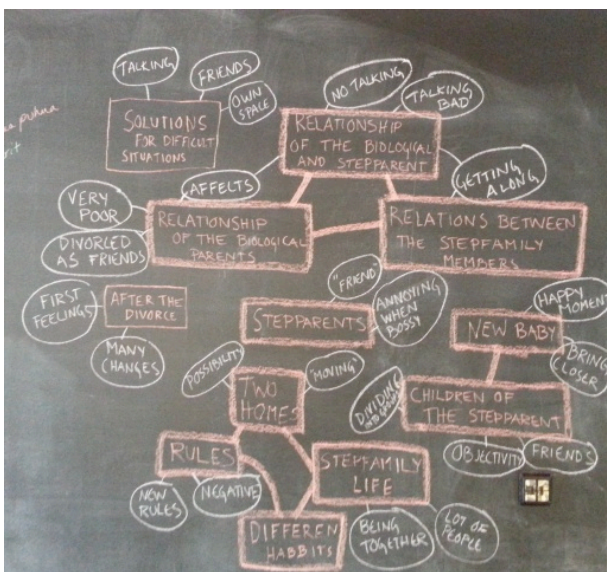 TALKING
FRIENDS
OWN
SPACE
SOLUTIONS
FOR DIFFICULT
SITUATIONS
NO TALKING
"TALKING
BAD"
RELATIONSHIP
OF THE BIOLOGICAL
AND STEPPARENT
GETTING
ALONG
AFFELTS
VERY
POOR
DIVORCED
AS FRIENDS
RELATIONSHIP
OF THE BIOLOGICAL
PARENTS
RELATIONS BETWEEN
THE STEPFAMILY
MEMBERS
FIRST
FEELINGS
AFTER THE
DIVORCE
MANY
CHANGES
"FRIEND"
STEPPARENTS
ANNOYING
WHEN
BOSSY
HAPPY
MOMENT
NEW BABY
BRING
CLOSER
POSSIBILITY
"MOVING"
TWO
HOMES
DIVIDING
CHILDREN OF
THE STEPPARENT
OBJECTIVITY
FRIENDS
RULES
NEW
RULES
NEGATIVE
STEPFAMILY
LIFE
BEING
TOGETHER
LOT OF
PEOPLE
DIFFEREN
HABBITS